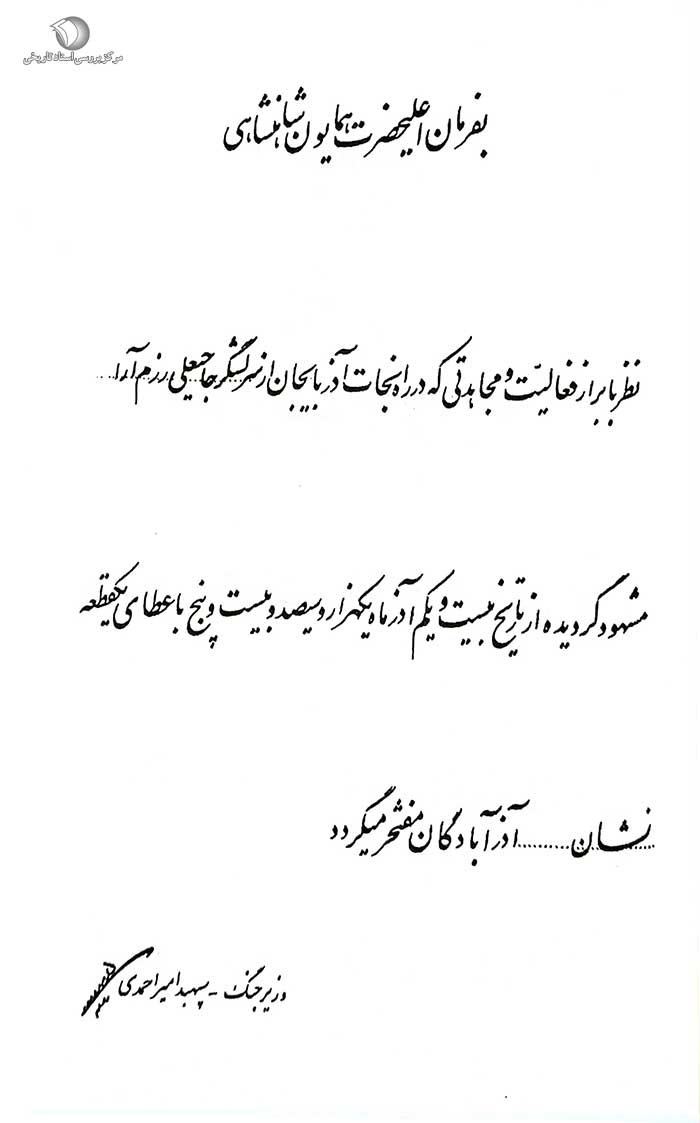 مرکز بررسی اسناد تاریخی
بفرمان اعلیحضرت همایون شاهنشاهی
نظر بابراز فعالیّت و مجاهدتی که در راه نجات آذربایجان از سرلشگر حاجیعلی رزم آرا
مشهود گردیده از تاریخ بیست و یکم آذر ماه یکهزار و سیصد و بیست و پنج با عطای یکقطعه
نشان ......... آذرآبادگان مفتخر میگردد
وزیر جنگ - سپهبد امیر احمدی